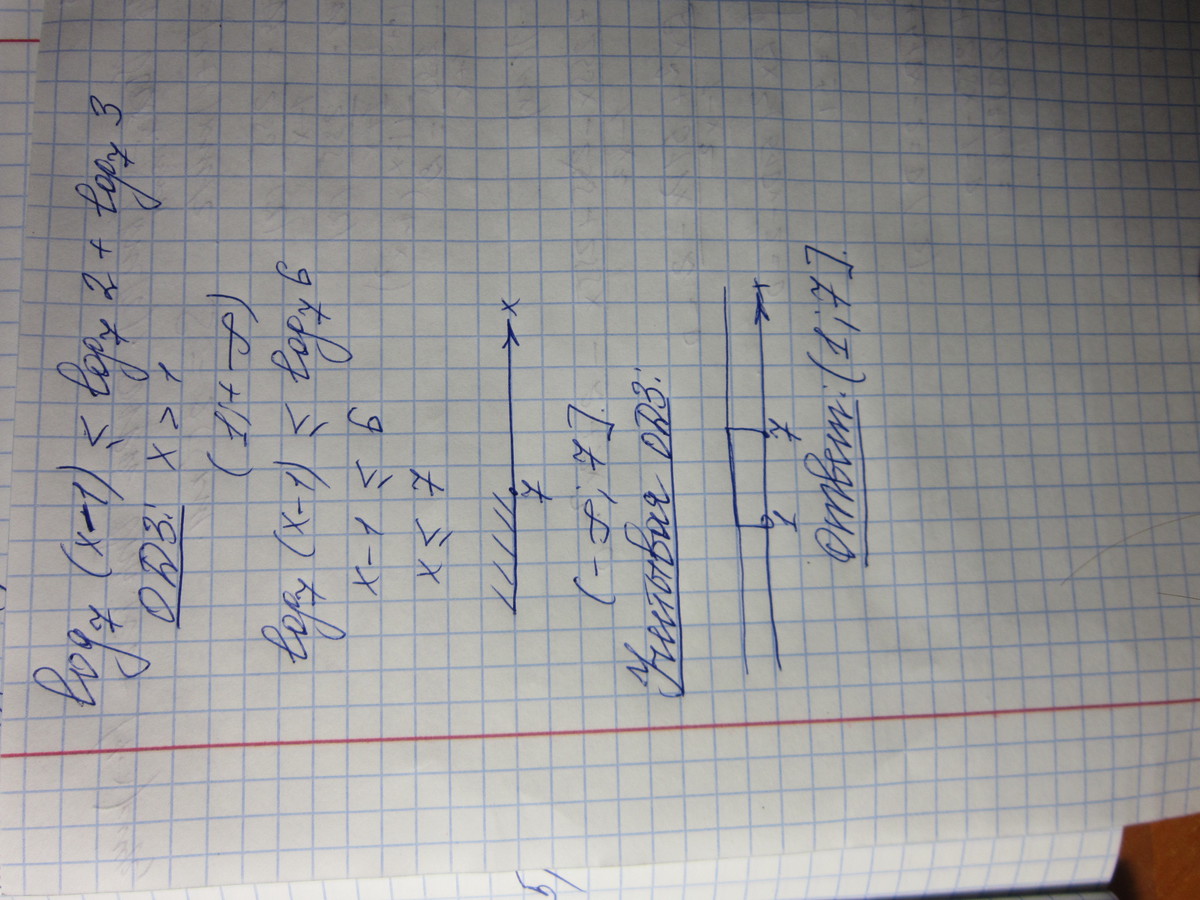 log₇ (x-1) ≤ log₇ 2 + log₇ 3
ОДЗ: x > 1
(1; + ∞)
log₇ (x-1) ≤ log₇ 6
x - 1 ≤ 6
x ≤ 7
7 x
(- ∞; 7].
Учитывая ОДЗ:
1 7 x
Ответ: (1; 7].
5)